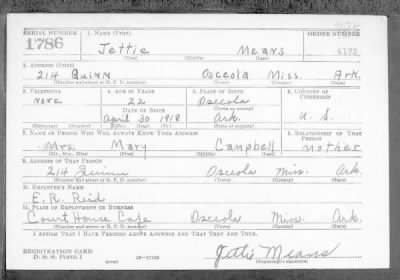 4172
SERIAL NUMBER 1. NAME (Print) ORDER NUMBER
1786 Jettie Means 4172
(First) (Middle) (Last)
2. ADDRESS (Print)
214 Quinn Osceola Miss. Ark.
(Number and street or R. F. D. number) (Town) (County) (State)
3. TELEPHONE 4. AGE IN YEARS 5. PLACE OF BIRTH 6. COUNTRY OF CITIZENSHIP
None 22 Osceola
DATE OF BIRTH (Town or county)
April 30 1918 Ark. U. S.
(Exchange) (Number) (Mo.) (Day) (Yr.) (State or country)
7. NAME OF PERSON WHO WILL ALWAYS KNOW YOUR ADDRESS 8. RELATIONSHIP OF THAT PERSON
Mrs. Mary Campbell mother
(Mr., Mrs., Miss) (First) (Middle) (Last)
9. ADDRESS OF THAT PERSON
214 Quinn Osceola Miss. Ark.
(Number and street or R. F. D. number) (Town) (County) (State)
10. EMPLOYER'S NAME
E. R. Reid
11. PLACE OF EMPLOYMENT OR BUSINESS
Court House Cafe Osceola Miss. Ark.
(Number and street or R. F. D. number) (Town) (County) (State)
I AFFIRM THAT I HAVE VERIFIED ABOVE ANSWERS AND THAT THEY ARE TRUE.
REGISTRATION CARD
D. S. S. Form 1 Jettie Means
(over) (Registrant's signature)